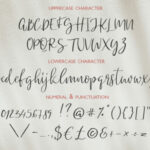 UPPERCASE CHARACTER
ABCDEFGHIJKLMN
OPQRSTUVWXYZ
LOWERCASE CHARACTER
abcdefghijklmn
opqrstuvwxyz
NUMERAL & PUNCTUATION
0123456789